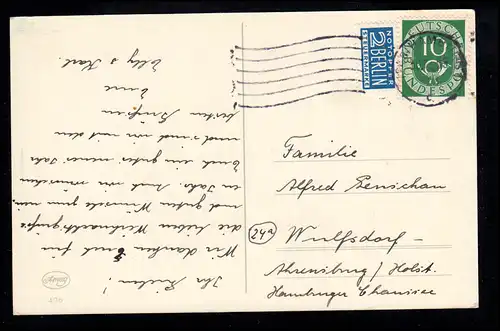 Ihr Lieben!
Wir danken Euch für
die lieben Weihnachtsgrüße
und guten Wünsche zum neu-
en Jahr. Auch wir wünschen
Euch ein gutes neues Jahr
und sind wir mit den
besten Grüßen
Eure
Elly u Karl.
NOTOPFER
2 BERLIN
STEUERMARKE
DEUTSCHE
10
BUNDESPOST
Familie
Alfred
24a
Wulfsdorf-
Ahrensburg / Holst.
Hamburger Chaussee